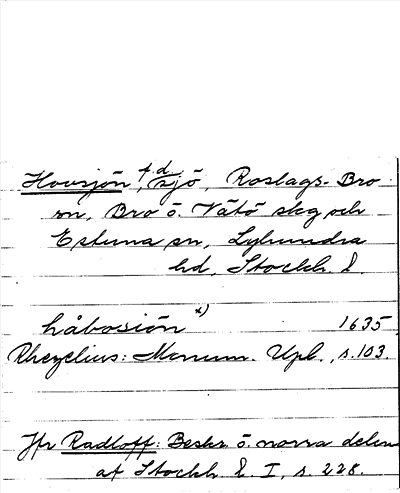 Hovsjön, f.d. sjö, Roslags-Bro
sn, Bro ö. Vätö skg och
Estuna sn, Lyhundra
hd, Stockh. l.
håbosiön x) 1635
Rhezelius: Monum. Upl., s. 103.
Jfr Radloff: Beskr. ö. norra delen
af Stockh. l. I, s. 228.